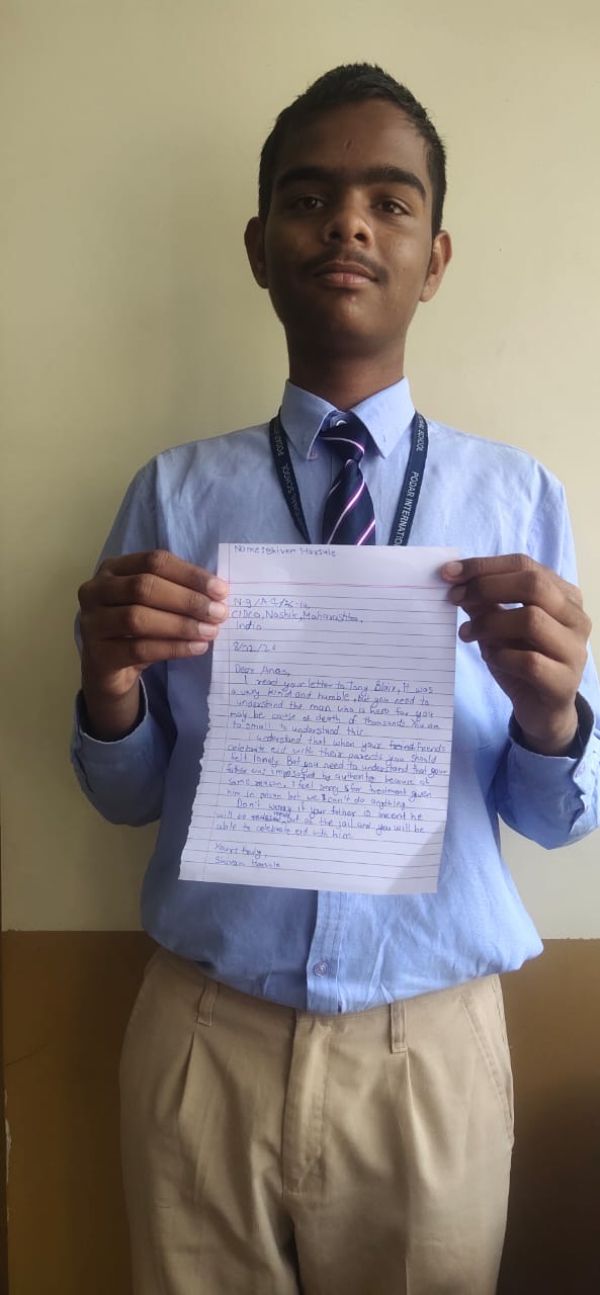 PODAR INTERNATIONAL SCHOOL
PODAR INTERNATIONAL SCHOOL
Name: Shivam
N-9/A-
CIDCO, Nashik, Maharashtra,
India
Dear Anas,
I read your letter to Tony Blair, It was
a very kind and humble, But you need to
understand the man who is hero for you
may be cause of death of thousands You are
to small to understand this.
I understand that when your friends
celebrate eid with their parents you should
felt lonely. But you need to understand that your
father was imprisoned by authority because of
some reason, I feel sorry for treatment given
him in prison but we can't do anything
Don't worry if your father is inocent he
will be out of the jail and you will be
able to celebrate eid with him.
Yours truly